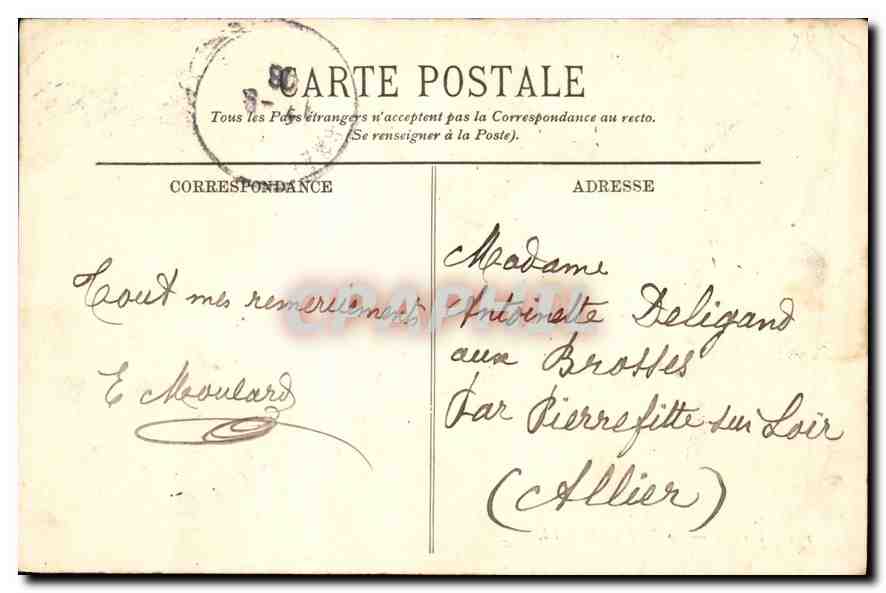 CARTE POSTALE
Tous les Pays étrangers n'acceptent pas la Correspondance au recto.
(Se renseigner à la Poste).
CORRESPONDANCE
Tout mes remerciements
E Moulard
ADRESSE
Madame
Antoinette Deligand
aux Brosses
Par Pierrefitte sur Loir
(Allier)
CPAPHIL